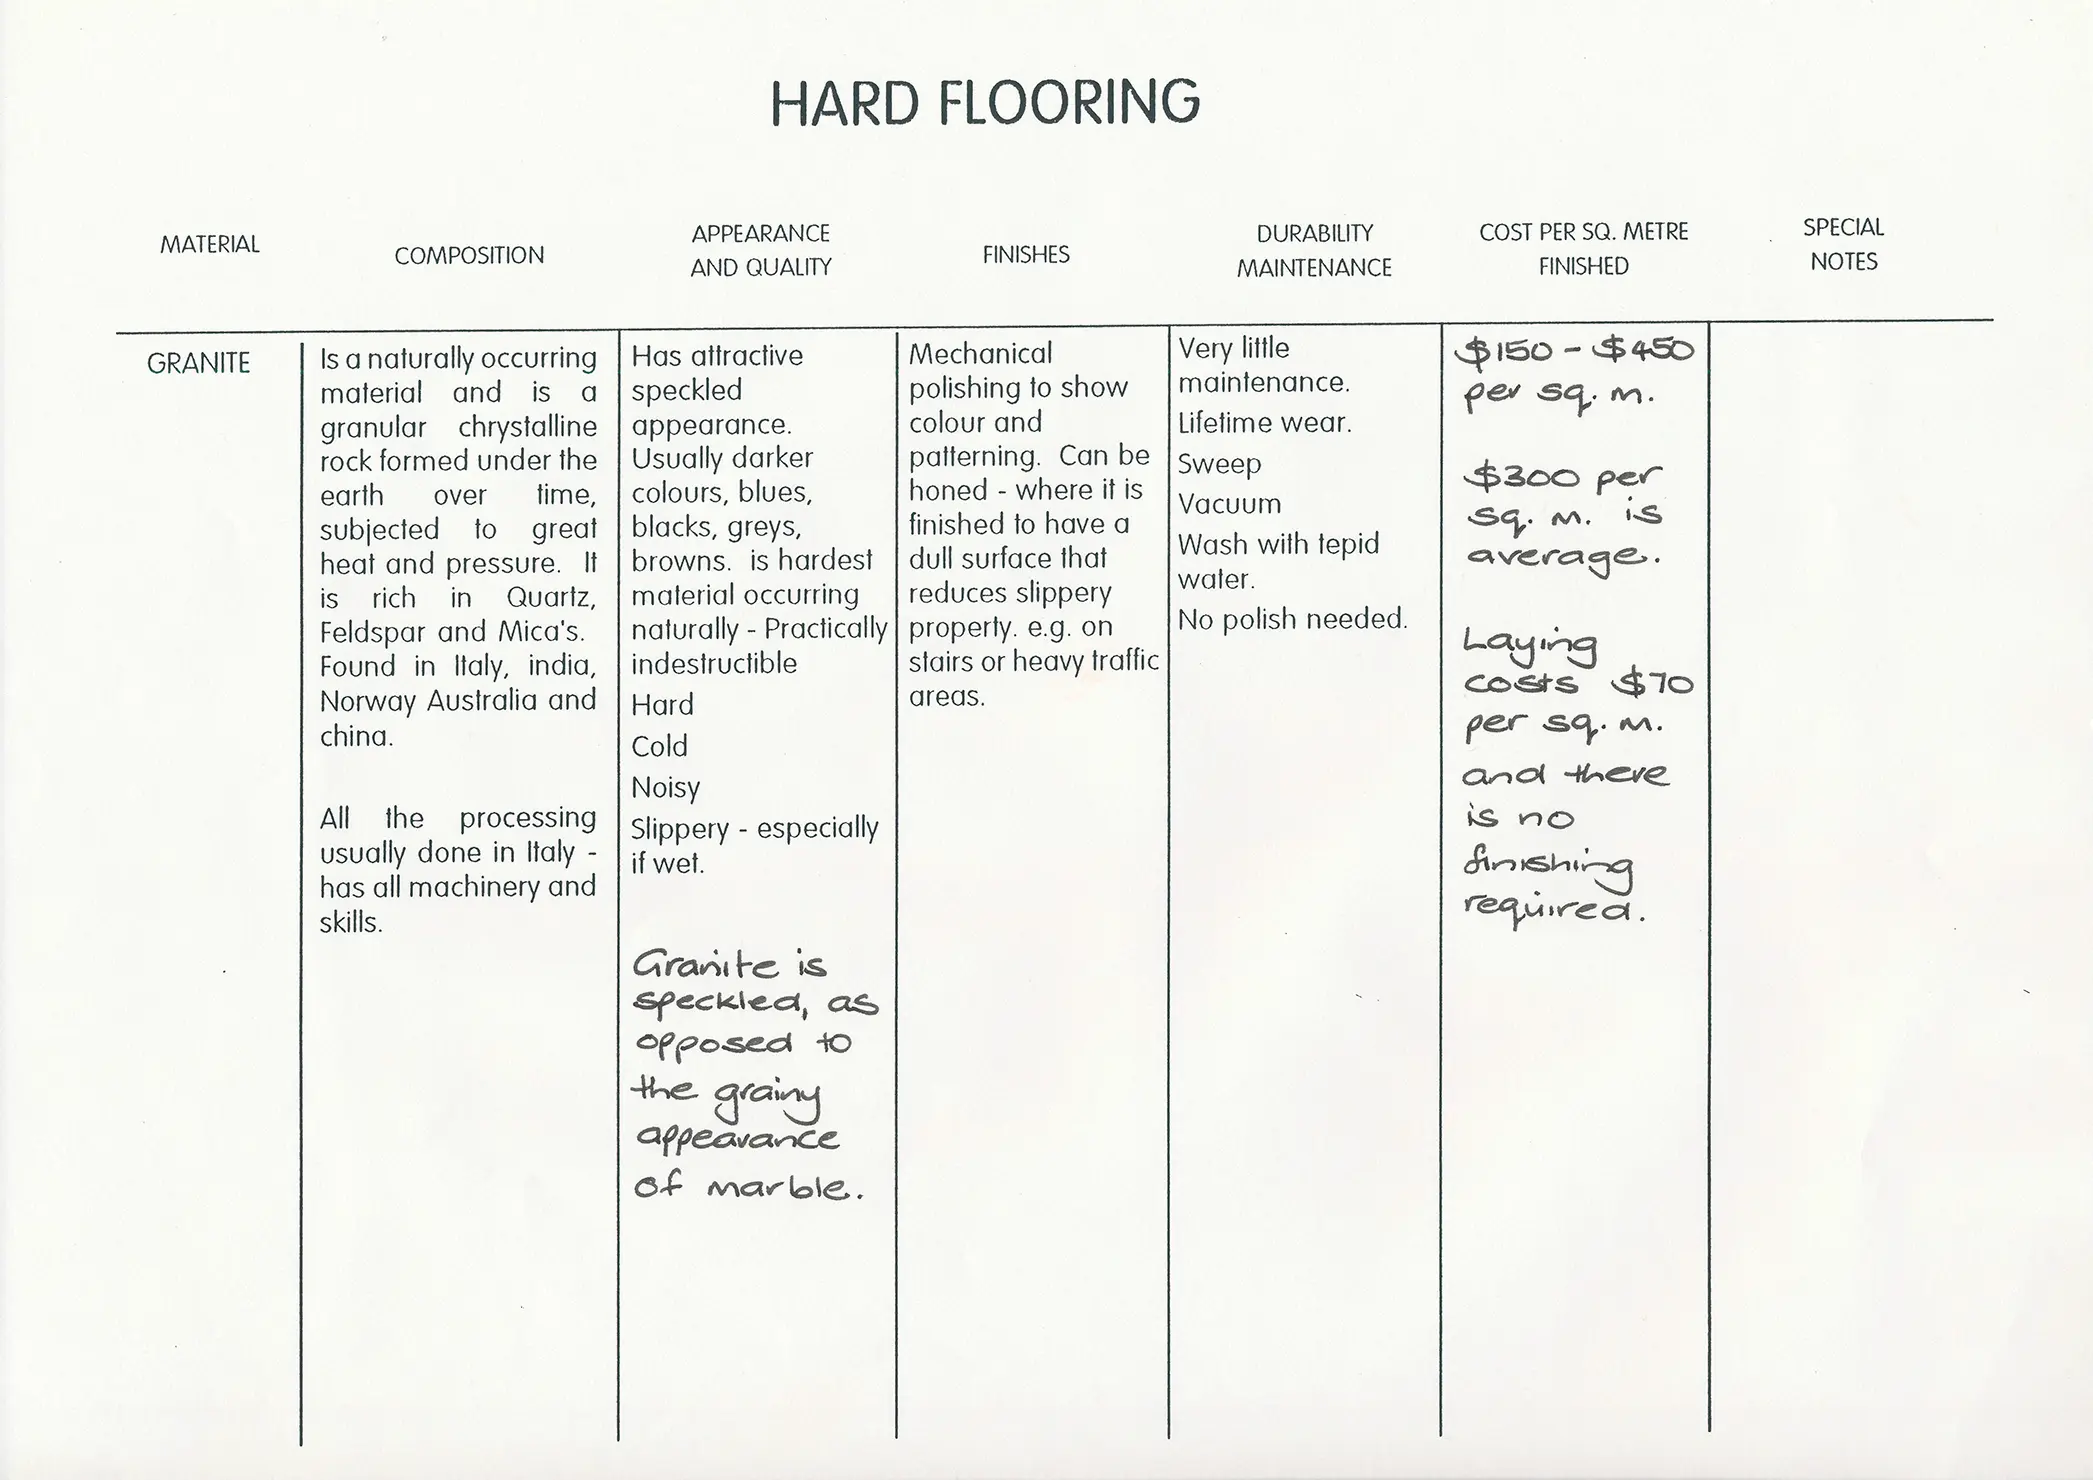 HARD FLOORING
MATERIAL
COMPOSITION
APPEARANCE
AND QUALITY
FINISHES
DURABILITY
MAINTENANCE
COST PER SQ. METRE
FINISHED
SPECIAL
NOTES
GRANITE
Is a naturally occurring
material and is a
granular chrystalline
rock formed under the
earth over time,
subjected to great
heat and pressure. It
is rich in Quartz,
Feldspar and Mica's.
Found in Italy, india,
Norway Australia and
china.
All the processing
usually done in Italy -
has all machinery and
skills.
Has attractive
speckled
appearance.
Usually darker
colours, blues,
blacks, greys,
browns. is hardest
material occurring
naturally - Practically
indestructible
Hard
Cold
Noisy
Slippery - especially
if wet.
Granite is
speckled, as
opposed to
the grainy
appearance
of marble.
Mechanical
polishing to show
colour and
patterning. Can be
honed - where it is
finished to have a
dull surface that
reduces slippery
property. e.g. on
stairs or heavy traffic
areas.
Very little
maintenance.
Lifetime wear.
Sweep
Vacuum
Wash with tepid
water.
No polish needed.
$150 - $450
per sq. m.
$300 per
sq. m. is
average.
Laying
costs $70
per sq. m.
and there
is no
finishing
required.